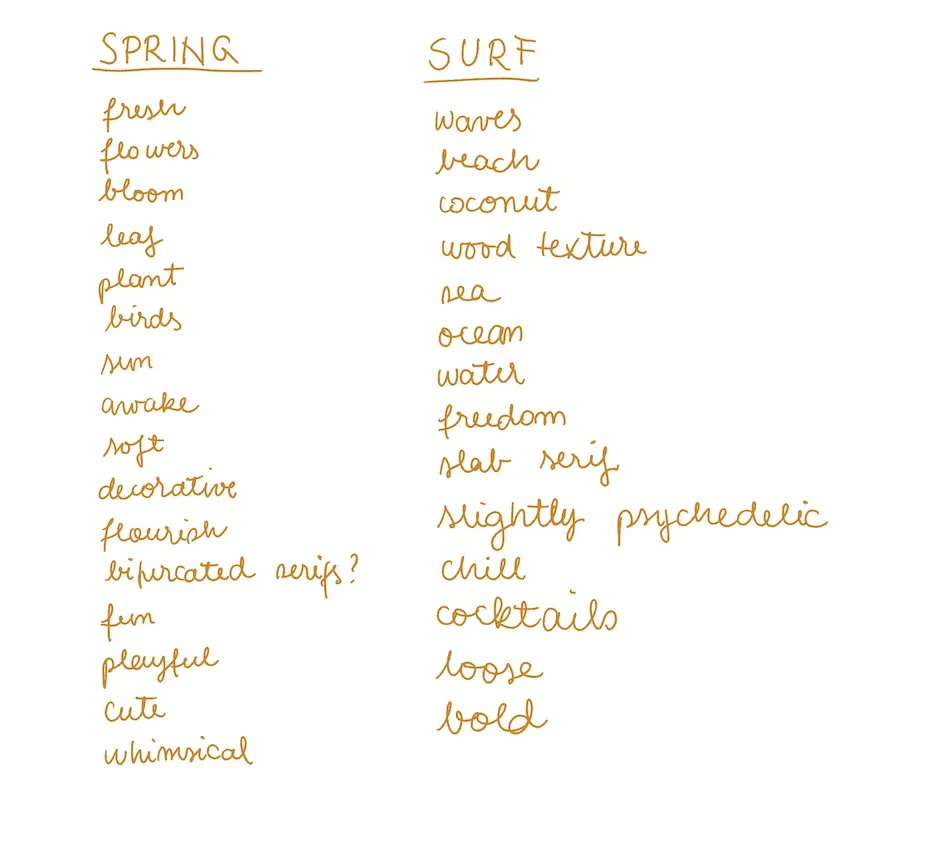 SPRING
fresh
flowers
bloom
leaf
plant
birds
sun
awake
soft
decorative
flourish
bifurcated serifs?
fun
playful
cute
whimsical
SURF
waves
beach
coconut
wood texture
sea
ocean
water
freedom
slab serif
slightly psychedelic
chill
cocktails
loose
bold